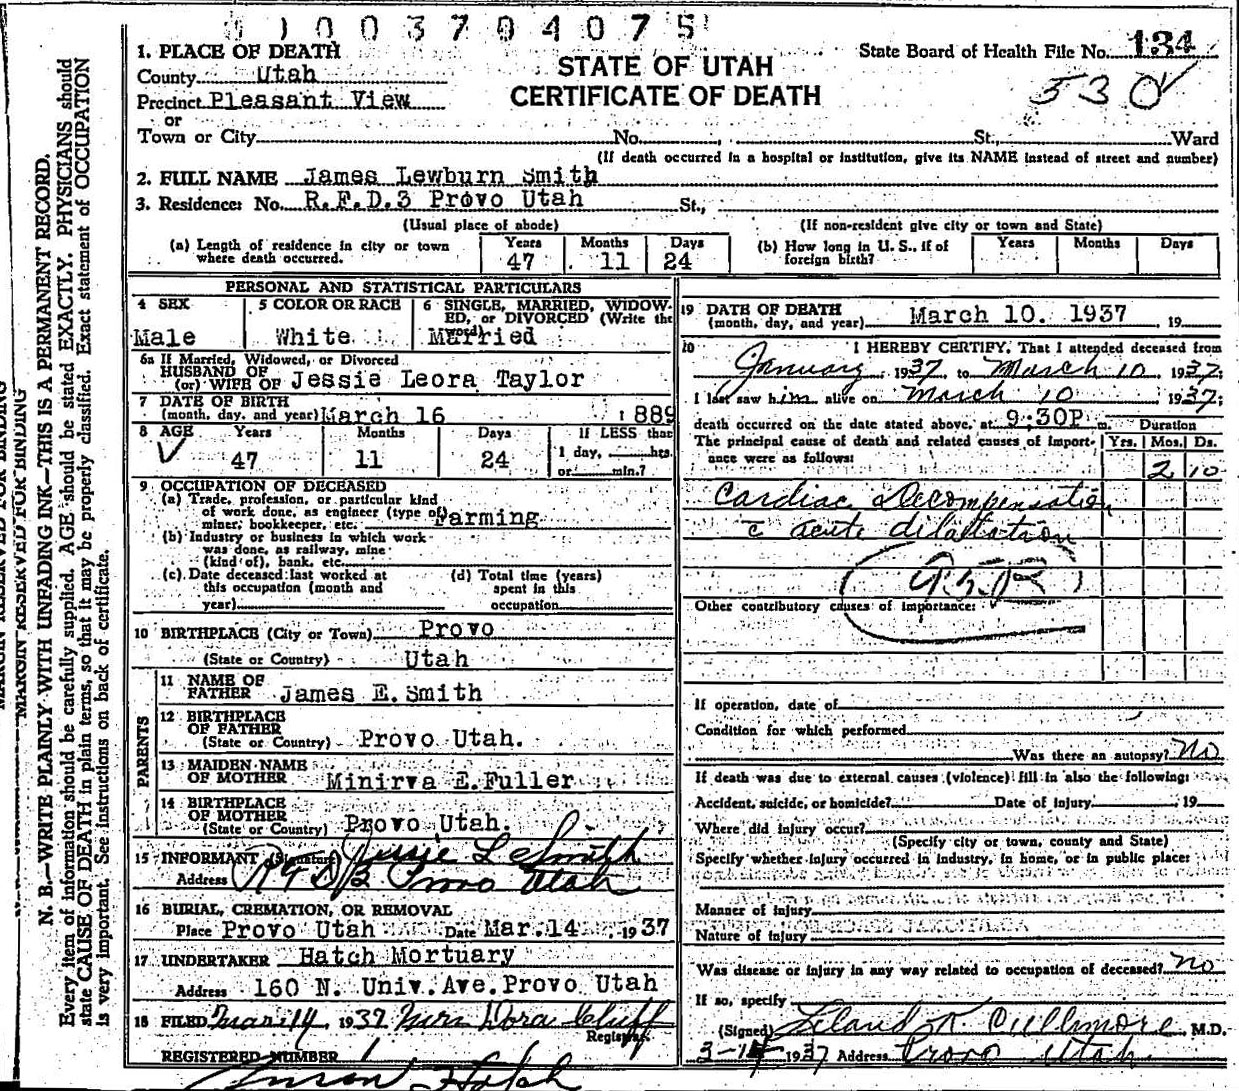 1003704075
1. PLACE OF DEATH
County Utah
Precinct Pleasant View
or
Town or City No. St., Ward
STATE OF UTAH
CERTIFICATE OF DEATH
State Board of Health File No. 134
530
(If death occurred in a hospital or institution, give its NAME instead of street and number)
2. FULL NAME James Lewburn Smith
3. Residence: No. R.F.D.3 Provo Utah St.,
(Usual place of abode) (If non-resident give city or town and State)
(a) Length of residence in city or town where death occurred. Years 47 Months 11 Days 24
(b) How long in U. S., if of foreign birth? Years Months Days
PERSONAL AND STATISTICAL PARTICULARS
4 SEX Male
5 COLOR OR RACE White
6 SINGLE, MARRIED, WIDOWED, or DIVORCED (Write the word) Married
6a If Married, Widowed, or Divorced
HUSBAND OF
(or) WIFE OF Jessie Leora Taylor
7 DATE OF BIRTH
(month, day, and year) March 16 1889
8 AGE Years 47 Months 11 Days 24
If LESS than
1 day, hrs.
or min.?
9 OCCUPATION OF DECEASED
(a) Trade, profession, or particular kind
of work done, as engineer (type of)
miner, bookkeeper, etc. Farming
(b) Industry or business in which work
was done, as railway, mine
(kind of), bank, etc.
(c) Date deceased last worked at
this occupation (month and
year)
(d) Total time (years)
spent in this
occupation
10 BIRTHPLACE (City or Town) Provo
(State or Country) Utah
PARENTS
11 NAME OF
FATHER James E. Smith
12 BIRTHPLACE
OF FATHER
(State or Country) Provo Utah.
13 MAIDEN NAME
OF MOTHER Minirva E. Fuller
14 BIRTHPLACE
OF MOTHER
(State or Country) Provo Utah.
15 INFORMANT (Signature) Jessie L Smith
Address R F D 3 Provo Utah
16 BURIAL, CREMATION, OR REMOVAL
Place Provo Utah Date Mar. 14 1937
17 UNDERTAKER Hatch Mortuary
Address 160 N. Univ. Ave. Provo Utah
18 FILED Mar 14, 1937 Mrs Dora Cluff
Registrar.
REGISTERED NUMBER 1
19 DATE OF DEATH
(month, day, and year) March 10. 1937 , 19
20 I HEREBY CERTIFY, That I attended deceased from
January , 1937, to March 10 , 1937;
I last saw him alive on March 10 1937;
death occurred on the date stated above, at 9:30P m. Duration
The principal cause of death and related causes of importance were as follows: Yrs. Mos. Ds.
2 10
Cardiac Decompensation
c acute dilatation
95B
Other contributory causes of importance:
If operation, date of
Condition for which performed
Was there an autopsy? No
If death was due to external causes (violence) fill in also the following:
Accident, suicide, or homicide? Date of injury 19
Where did injury occur?
(Specify city or town, county and State)
Specify whether injury occurred in industry, in home, or in public place:
Manner of injury
Nature of injury
Was disease or injury in any way related to occupation of deceased? No
If so, specify
(Signed) Leland K. Cullimore, M.D.
3-14 1937 Address Provo Utah
MARGIN RESERVED FOR BINDING
N. B.—WRITE PLAINLY WITH UNFADING INK—THIS IS A PERMANENT RECORD.
Every item of information should be carefully supplied. AGE should be stated EXACTLY. PHYSICIANS should
state CAUSE OF DEATH in plain terms, so that it may be properly classified. Exact statement of OCCUPATION
is very important. See instructions on back of certificate.